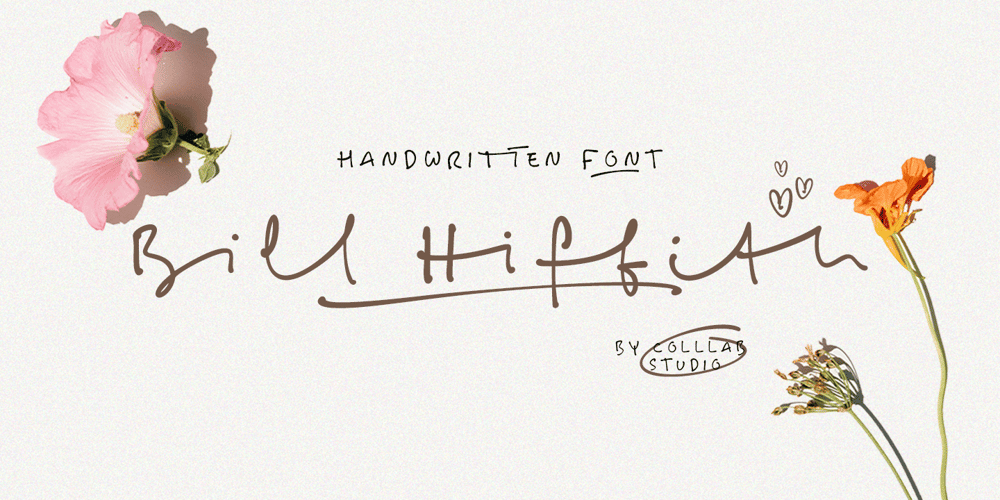 HANDWRITTEN FONT
Bill Hiffith
BY COLLLAB
STUDIO